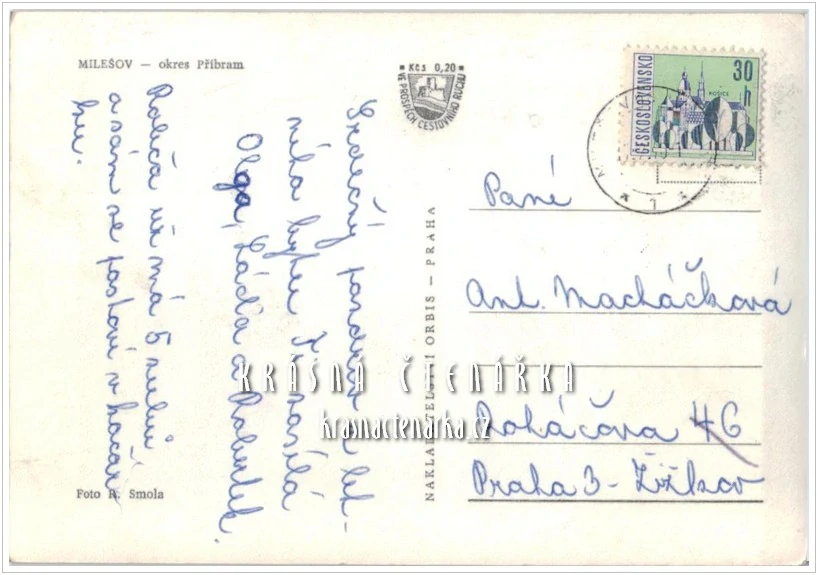 MILEŠOV — okres Příbram
Kčs 0,20
VE PROSPĚCH CESTOVNÍHO RUCHU
ČESKOSLOVENSKO
30 h
KOŠICE
Srdečný pozdrav z let-
ního bytu Vám zasílá
Olga, Láďa a Robertek.
Robča už má 5 zubů
a sám se postaví v kočár
ku.
Paní
Ant. Macháčková
Roháčova 46
Praha 3 - Žižkov
NAKLADATELSTVÍ ORBIS — PRAHA
KRÁSNÁ ČTENÁŘKA
krasnactenarka.cz
Foto R. Smola